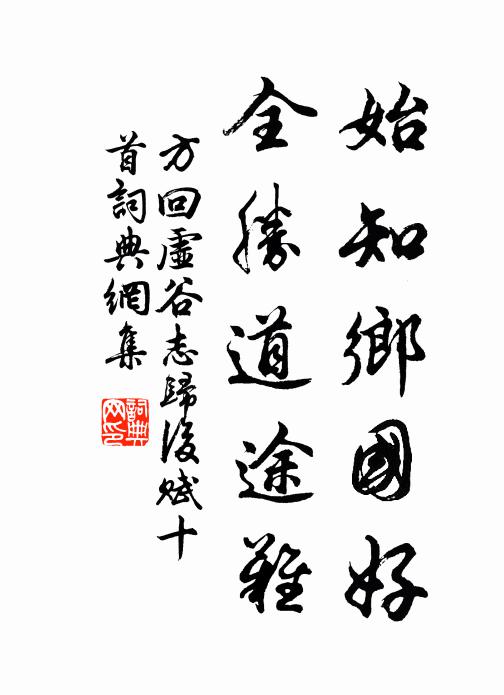 始知鄉國好
全勝道途難
方回虛谷志歸後賦十
首詞典網集
詞典網印